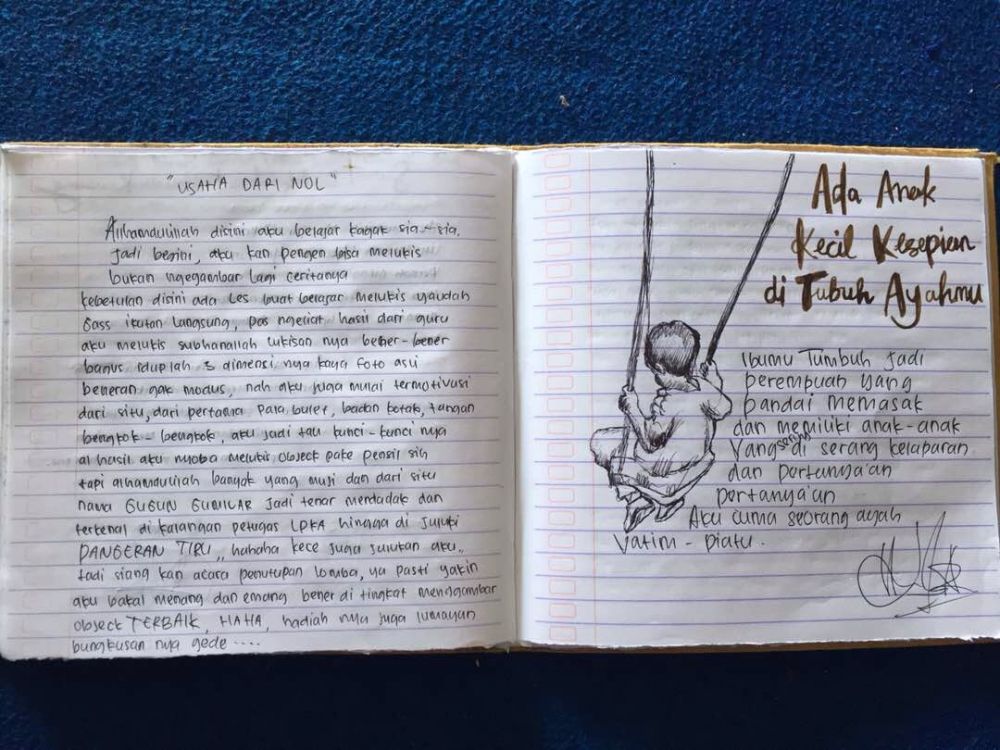 "USAHA DARI NOL"
Alhamdulillah disini aku belajar kagak sia-sia,
Jadi begini, aku kan pengen bisa melukis
bukan ngegambar lagi ceritanya
kebetulan disini ada Les buat belajar melukis yaudah
Gass ikutan langsung, pas ngeliat hasil dari guru
aku melukis subhanallah lukisan nya bener-bener
bagus iduplah 3 dimensi nya kaya foto asli
beneran gak modus, nah aku juga mulai termotivasi
dari situ, dari pertama pala bulet, badan kotak, tangan
bengkok-bengkok, aku jadi tau kunci-kunci nya
al hasil aku nyoba melukis object pake pensil sih
tapi alhamdulillah banyak yang muji dan dari situ
nama GUGUN GUMILAR Jadi tenar mendadak dan
terkenal di kalangan petugas LPKA hingga di juluki
PANGERAN TIPU,, hahaha kece juga julukan aku,,
tadi siang kan acara penutupan lomba, ya pasti yakin
aku bakal menang dan emang bener di tingkat menggambar
object TERBAIK, HAHA, hadiah nya juga lumayan
bungkusan nya gede ....
Ada Anak
Kecil Kesepian
di Tubuh Ayahmu
Ibumu Tumbuh Jadi
perempuan yang
pandai memasak
dan memiliki anak-anak
Yang sering di serang kelaparan
dan pertanya'an
pertanya'an
Aku cuma seorang ayah
Yatim - piatu.